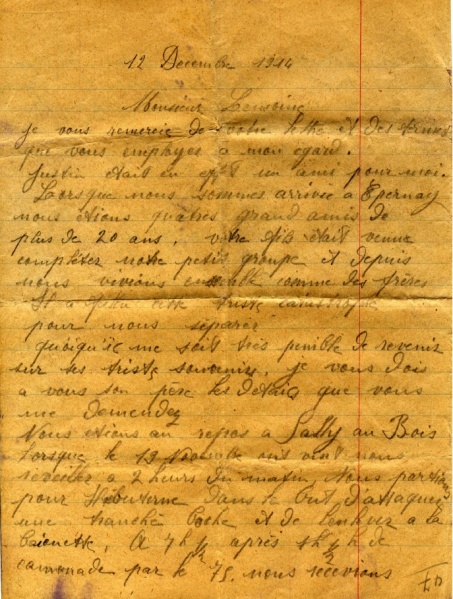 12 Decembre 1914
Monsieur
je vous remercie de votre lettre et des termes
que vous employes a mon egard.
Justin etait en effet un ami pour moi.
Lorsque nous sommes arrivée a Epernay
nous etions quatres grand amis de
plus de 20 ans. votre fils était venue
compléter notre petit groupe et depuis
nous vivions ensemble comme des frères
Il a fallu cette triste catastrophe
pour nous séparer
quoiqu'il me soit très penible de revenir
sur ses triste souvenirs, je vous dois
a vous son père les details que vous
me demendez
Nous etions au repos à Sailly au Bois
lorsque le 19 Novembre ont vint nous
reveiller a 2 heurs du matin Nous partions
pour Hébuterne dans le but d'attaquer
une tranché boche et de lenlever a la
baionette. A 7h 1/2 après 1h 1/2 de
canonade par le 75. nous recevions